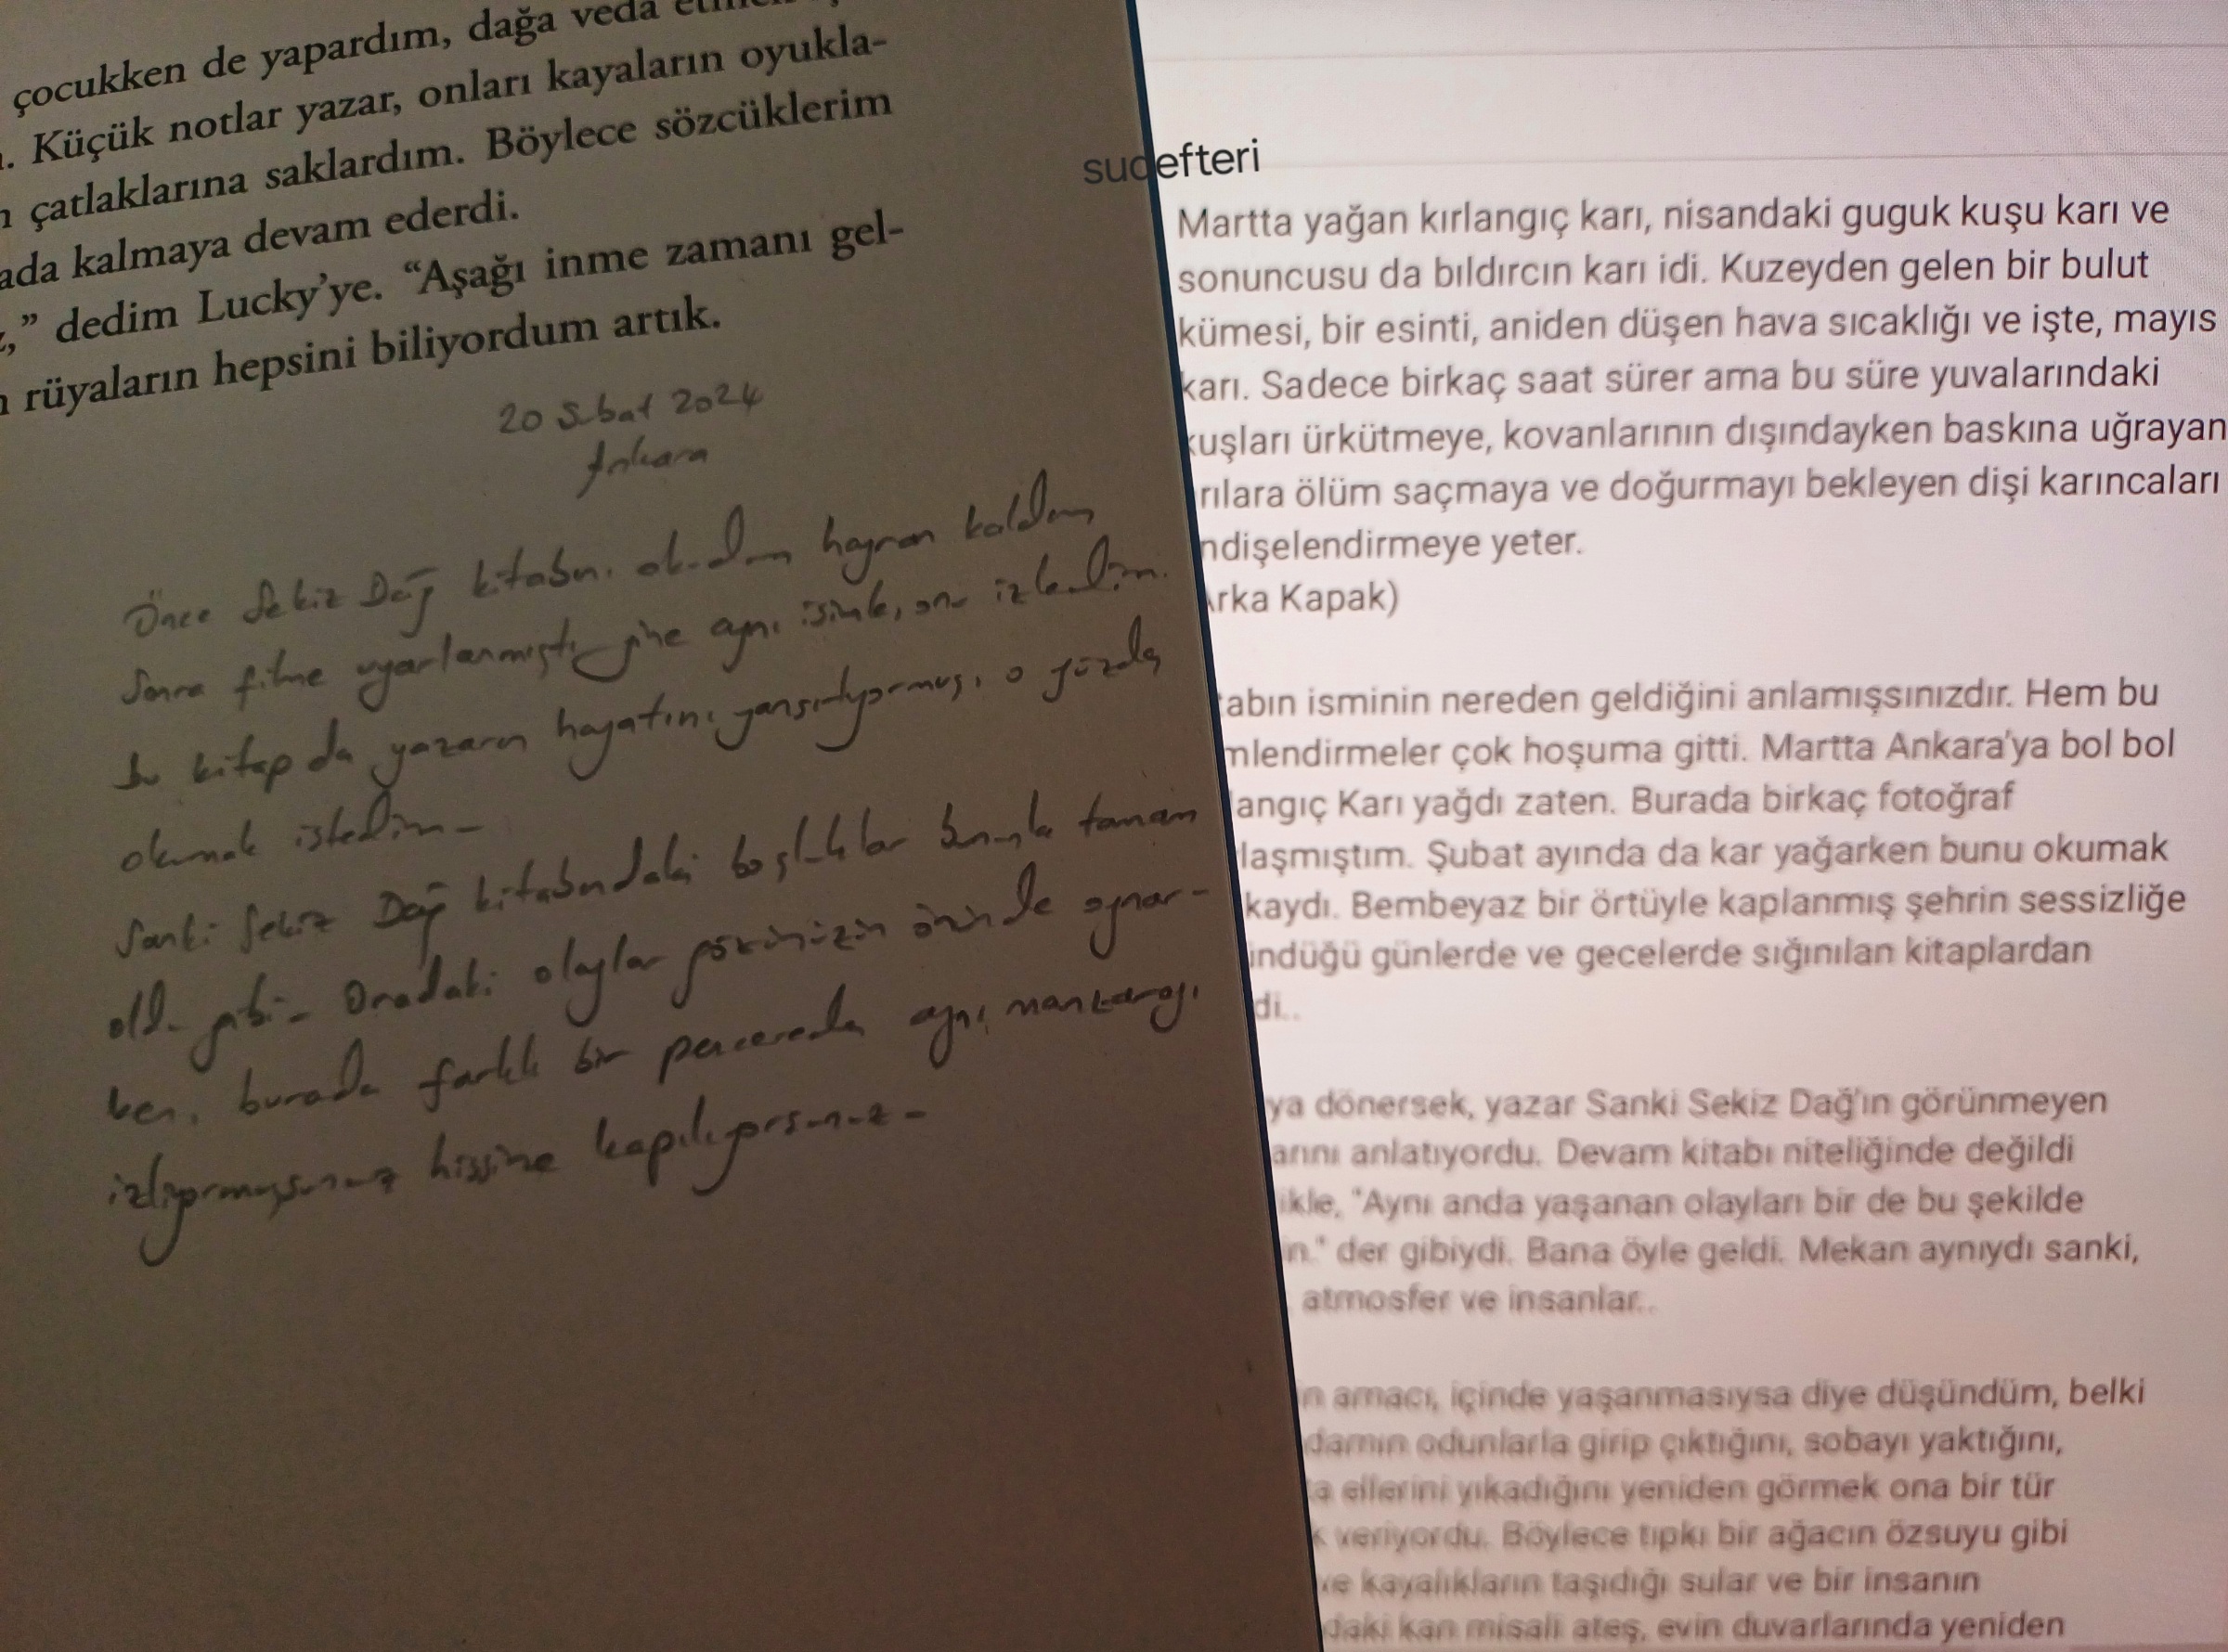 çocukken de yapardım, dağa veda
. Küçük notlar yazar, onları kayaların oyukla-
çatlaklarına saklardım. Böylece sözcüklerim
ada kalmaya devam ederdi.
,” dedim Lucky’ye. “Aşağı inme zamanı gel-
rüyaların hepsini biliyordum artık.
20 Şubat 2024
Ankara
Önce Sekiz Dağ kitabını okudum hayran kaldım
Sonra filme uyarlanmıştı yine aynı isimle, onu izledim.
bu kitap da yazarın hayatını yansıtıyormuş, o yüzden
okumak istedim-
Sanki Sekiz Dağ kitabındaki boşluklar bununla tamam
oldu gibi- Oradaki olaylar gözünüzün önünde oynar-
ken, burada farklı bir pencereden aynı manzarayı
izliyormuşsunuz hissine kapılıyorsunuz-
sudefteri
Martta yağan kırlangıç karı, nisandaki guguk kuşu karı ve
sonuncusu da bıldırcın karı idi. Kuzeyden gelen bir bulut
kümesi, bir esinti, aniden düşen hava sıcaklığı ve işte, mayıs
karı. Sadece birkaç saat sürer ama bu süre yuvalarındaki
kuşları ürkütmeye, kovanlarının dışındayken baskına uğrayan
rılara ölüm saçmaya ve doğurmayı bekleyen dişi karıncaları
ndişelendirmeye yeter.
rka Kapak)
tabın isminin nereden geldiğini anlamışsınızdır. Hem bu
mlendirmeler çok hoşuma gitti. Martta Ankara'ya bol bol
langıç Karı yağdı zaten. Burada birkaç fotoğraf
laşmıştım. Şubat ayında da kar yağarken bunu okumak
kaydı. Bembeyaz bir örtüyle kaplanmış şehrin sessizliğe
ündüğü günlerde ve gecelerde sığınılan kitaplardan
di..
ya dönersek, yazar Sanki Sekiz Dağ'ın görünmeyen
arını anlatıyordu. Devam kitabı niteliğinde değildi
ikle, "Aynı anda yaşanan olayları bir de bu şekilde
n." der gibiydi. Bana öyle geldi. Mekan aynıydı sanki,
atmosfer ve insanlar..
n amacı, içinde yaşanmasıysa diye düşündüm, belki
damın odunlarla girip çıktığını, sobayı yaktığını,
a ellerini yıkadığını yeniden görmek ona bir tür
k veriyordu. Böylece tıpkı bir ağacın özsuyu gibi
ve kayalıkların taşıdığı sular ve bir insanın
daki kan misali ateş, evin duvarlarında yeniden